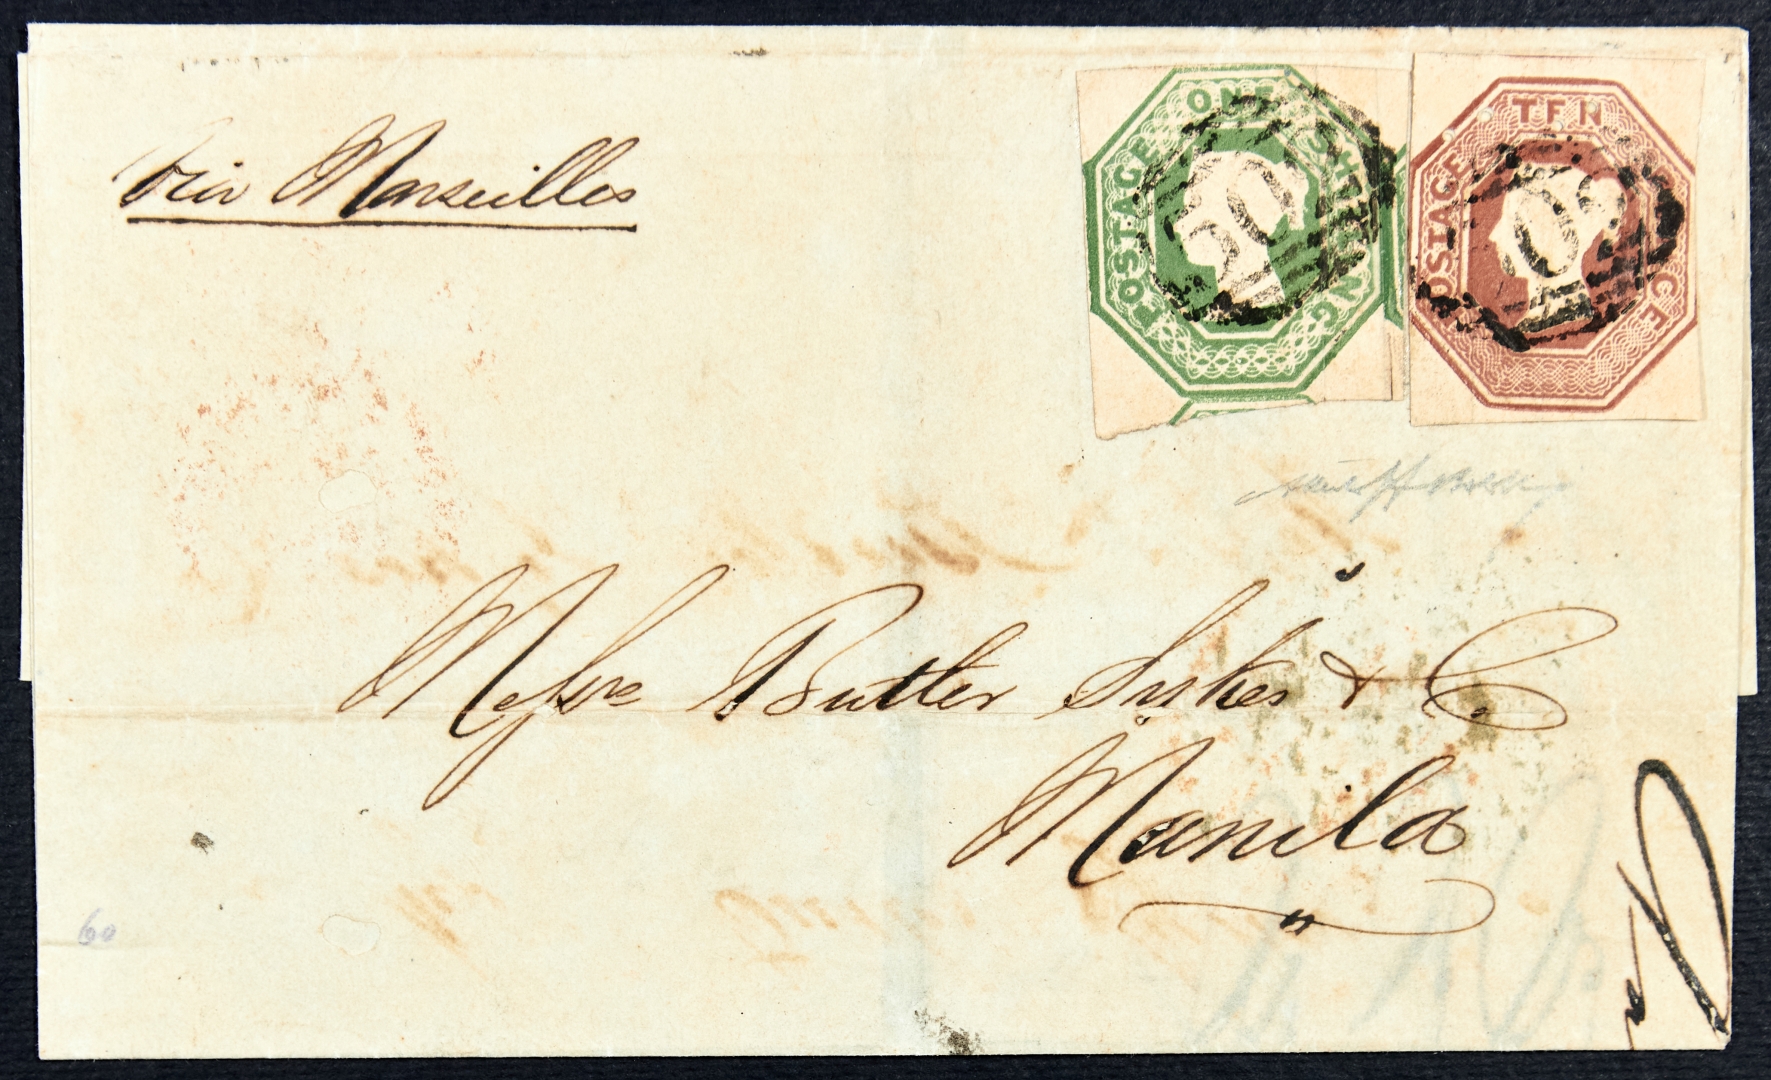 Via Marseilles
POSTAGE ONE SHILLING
POSTAGE TEN PENCE
Messrs Butler Sykes & Co
Manila
60